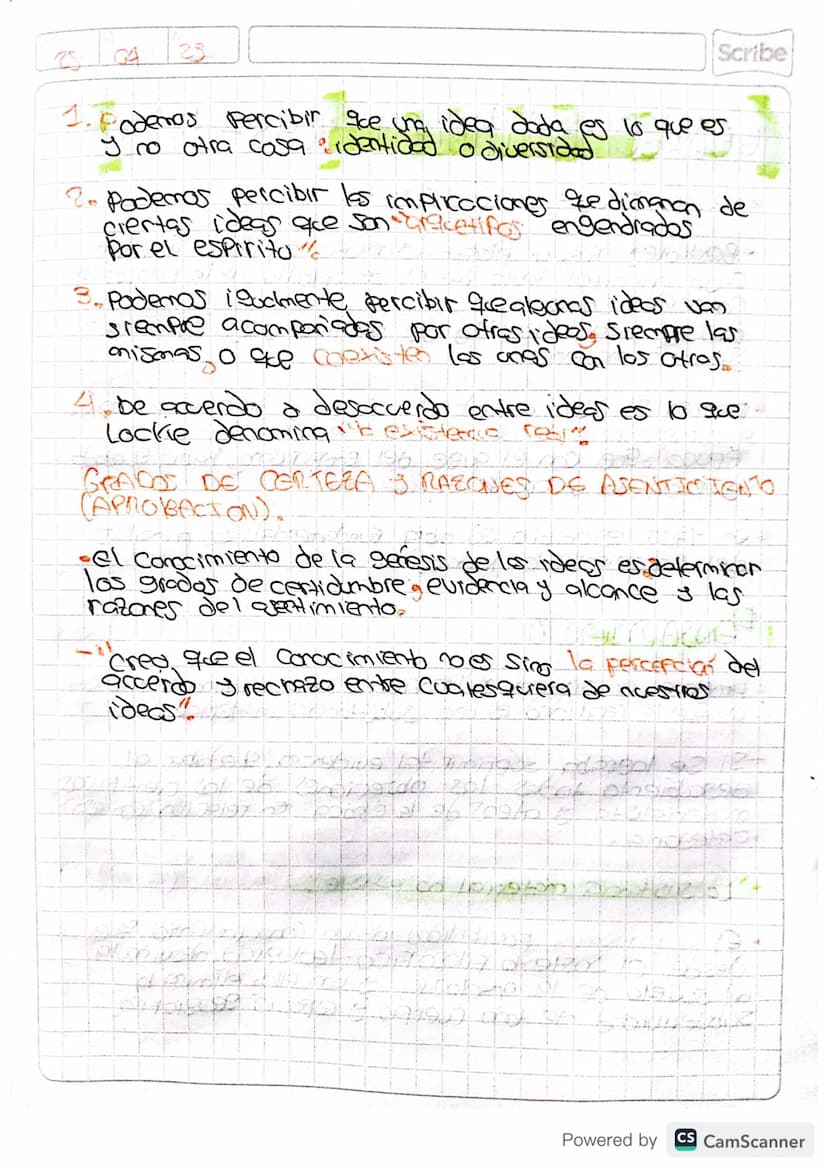 25 04 23
Scribe
1. Podemos percibir que una idea dada es lo que es
y no otra cosa : identidad o diversidad
2. Podemos percibir las implicaciones que dimanan de
ciertas ideas que son "arquetipos engendrados
por el espiritu".
3. Podemos igualmente percibir que algunas ideas van
siempre acompañadas por otras ideas, siempre las
mismas, o que coexisten las unas con los otras.
4. De acuerdo a desacuerdo entre ideas es lo que
Lockie denomina "la existencia real".
GRADOS DE CERTEZA Y RAZONES DE ASENTIMIENTO
(APROBACION).
•el conocimiento de la genesis de las ideas es determinar
los grados de certidumbre, evidencia y alcance y las
razones del asentimiento.
-"Creo, que el conocimiento no es sino la percepción del
acuerdo y rechazo entre cualesquiera de nuestras
ideas".
Powered by CS CamScanner